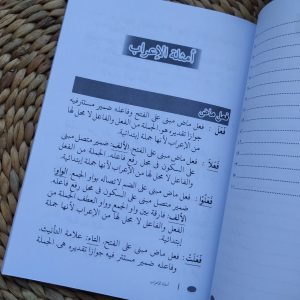 أمثلة الإعراب
فعل ماض
فَعَلَ : فعل ماض مبنى على الفتح وفاعله ضمير مستتر فيه
جوازا تقديره هو، الجملة من الفعل والفاعل لا محل لها
من الإعراب لأنها جملة ابتدائية.
فَعَلاَ : فعل ماض مبنى على الفتح. الألف: ضمير متصل مبنى
على السكون فى محل رفع فاعله. الجملة من الفعل
والفاعل لا محل لها من الإعراب لأنها جملة ابتدائية.
فَعَلُوْا : فعل ماض مبنى على الضم لاتصاله بواو الجمع. الواو:
ضمير متصل مبنى على السكون فى محل رفع فاعله.
الألف: فارقة بين واو الجمع وواو العطف. الجملة من
الفعل والفاعل لا محل لها من الإعراب لأنها جملة
ابتدائية.
فَعَلَتْ : فعل ماض مبنى على الفتح. التاء: علامة التأنيث.
وفاعله ضمير مستتر فيه جوازا تقديره هى. الجملة
أمثلة الإعراب